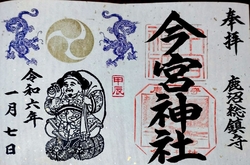 奉拝
鹿沼総鎮守
今宮神社
甲辰
令和六年
一月七日